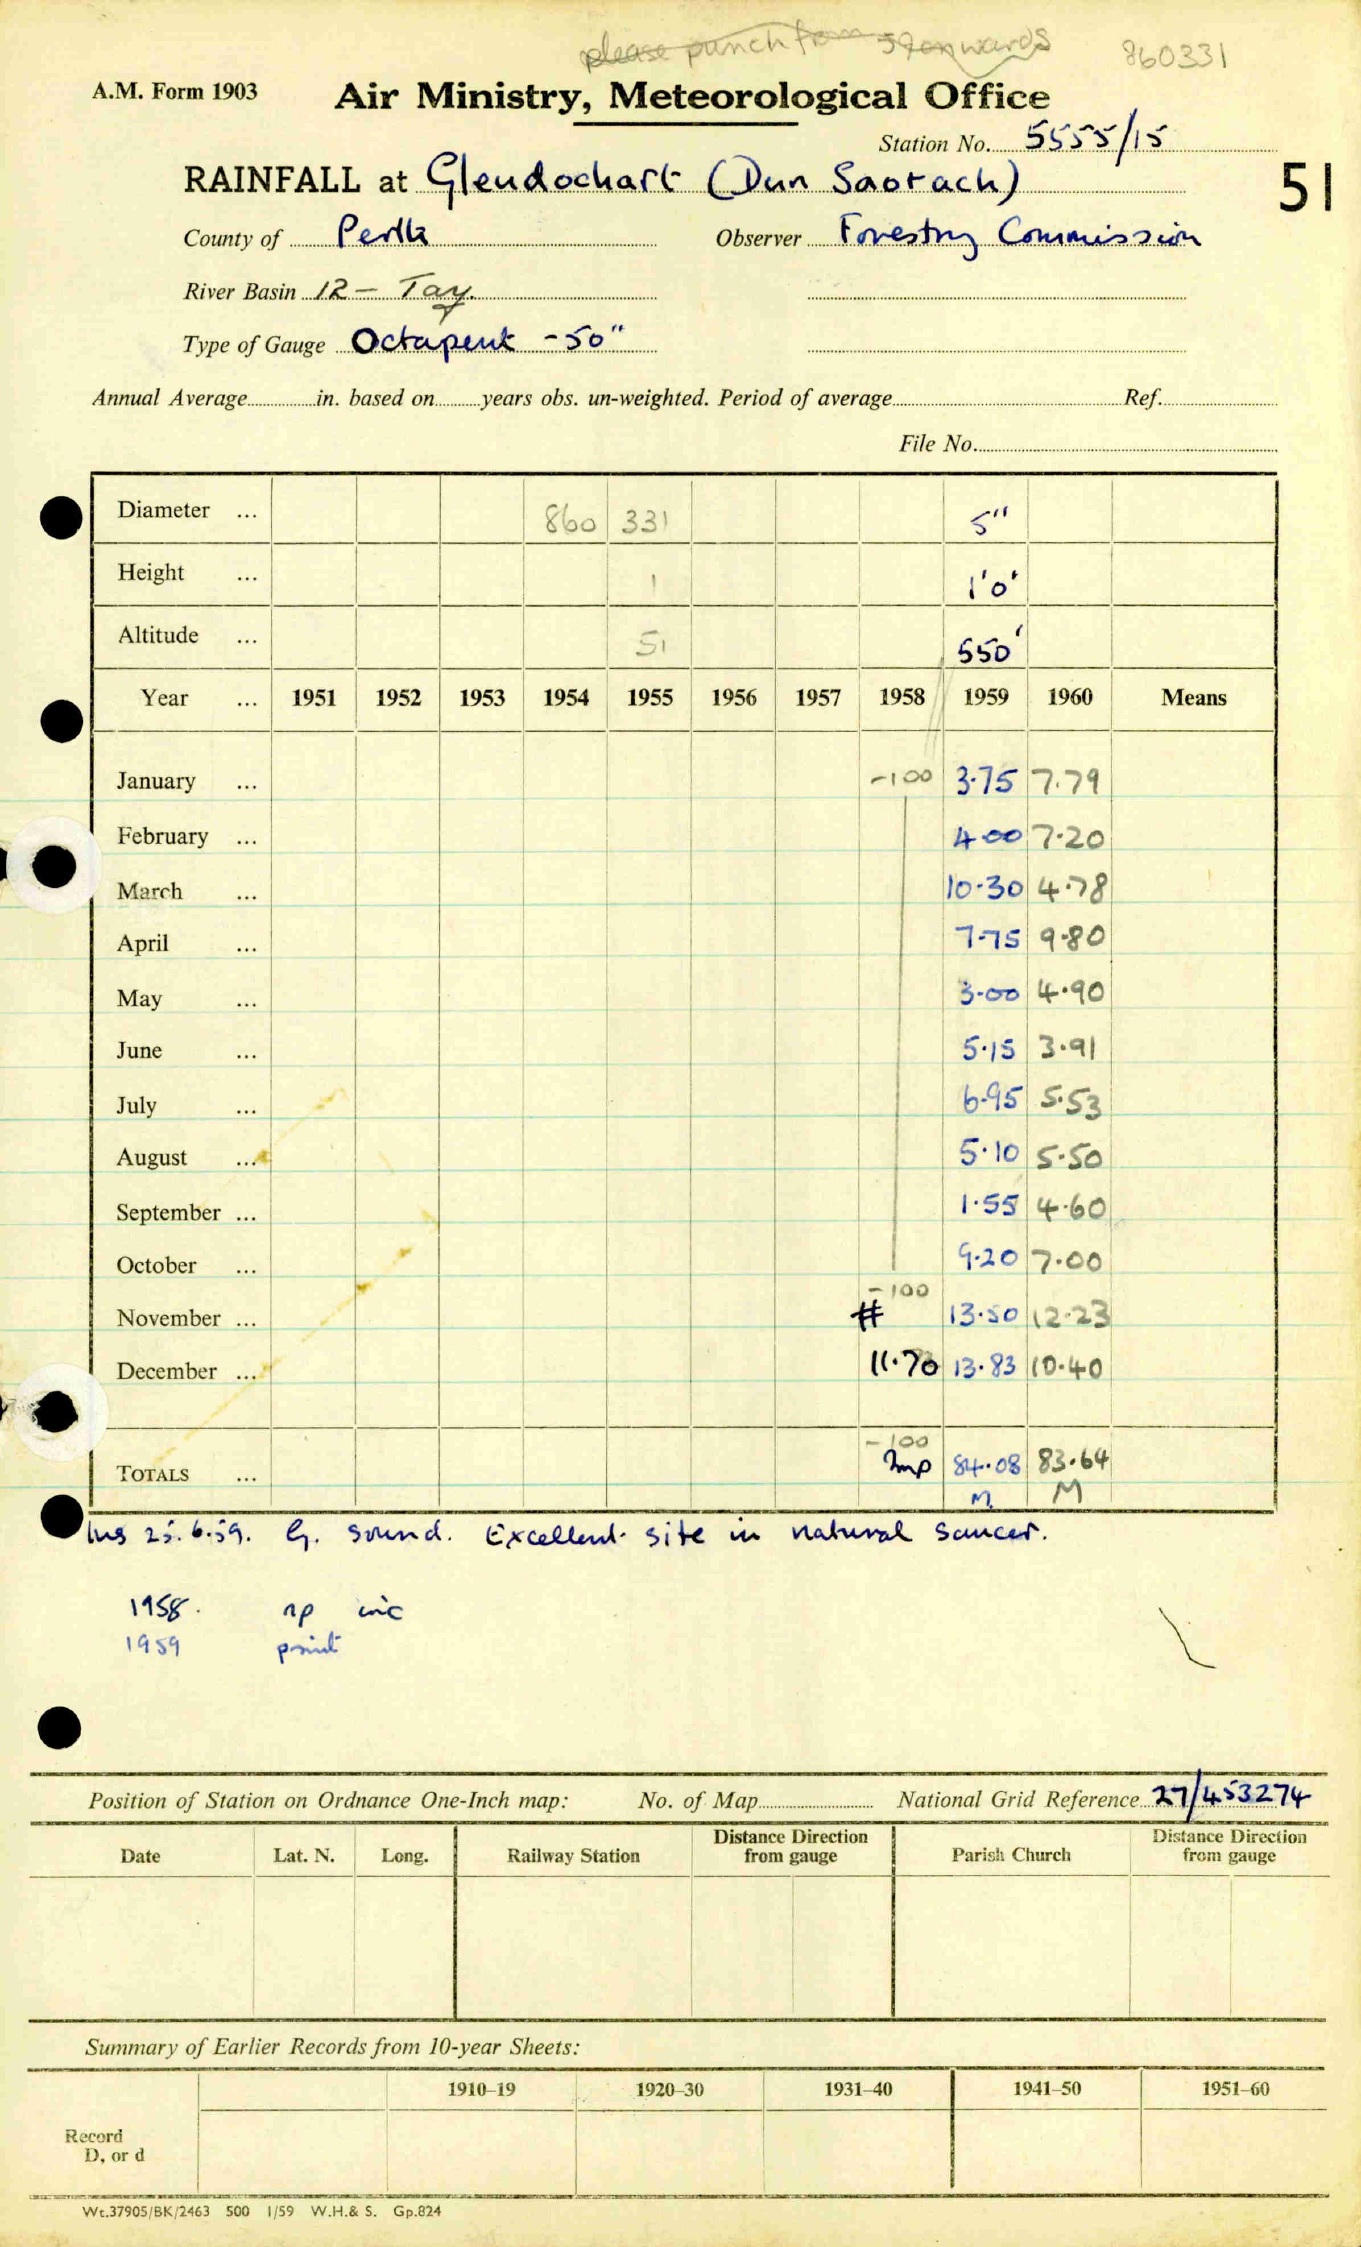 please punch from 59 onwards 860331
A.M. Form 1903 Air Ministry, Meteorological Office
Station No. 5555/15
RAINFALL at Glendochart (Dun Saorach) 51
County of Perth Observer Forestry Commission
River Basin 12 - Tay.
Type of Gauge Octapent - 50"
Annual Average in. based on years obs. un-weighted. Period of average Ref.
File No.
Diameter ... 860 331 5"
Height ... 1 1'0"
Altitude ... 51 550'
Year ... 1951 1952 1953 1954 1955 1956 1957 1958 1959 1960 Means
January ... -100 3.75 7.79
February ... 4.00 7.20
March ... 10.30 4.78
April ... 7.75 9.80
May ... 3.00 4.90
June ... 5.15 3.91
July ... 6.95 5.53
August ... 5.10 5.50
September ... 1.55 4.60
October ... 9.20 7.00
-100
November ... # 13.50 12.23
December ... 11.70 13.83 10.40
-100
TOTALS ... Imp 84.08 83.64
M. M
Ins 25.6.59. G. sound. Excellent site in natural saucer.
1958. np inc
1959 print
Position of Station on Ordnance One-Inch map: No. of Map National Grid Reference 27/453274
Date Lat. N. Long. Railway Station Distance Direction from gauge Parish Church Distance Direction from gauge
Summary of Earlier Records from 10-year Sheets:
1910–19 1920–30 1931–40 1941–50 1951–60
Record
D, or d
Wt.37905/BK/2463 500 1/59 W.H.& S. Gp.824